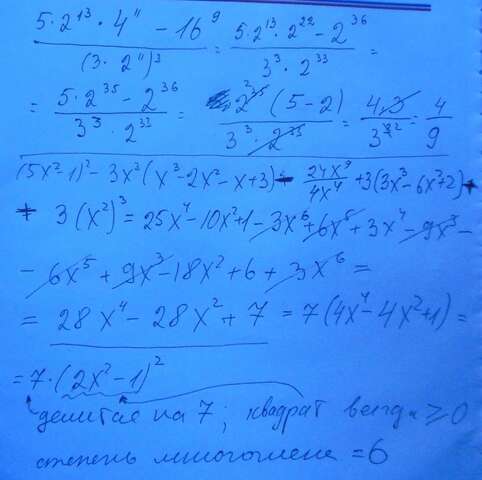 5·2¹³·4¹¹ − 16⁹ / (3·2¹¹)³ = 5·2¹³·2²² − 2³⁶ / 3³·2³³ =
= 5·2³⁵ − 2³⁶ / 3³·2³³ = 2³⁵ (5−2) / 3³·2³³ = 4·3 / 3³² = 4/9
(5x²−1)² − 3x²(x³−2x²−x+3) − 24x⁹/4x⁴ + 3(3x³−6x²+2) +
+ 3(x²)³ = 25x⁴−10x²+1−3x⁶+6x⁵+3x⁴−9x³−
− 6x⁵ + 9x³−18x²+6 + 3x⁶ =
= 28x⁴ − 28x² + 7 = 7(4x⁴−4x²+1) =
= 7·(2x²−1)²
делится на 7; квадрат всегда ≥ 0
степень многочлена = 6